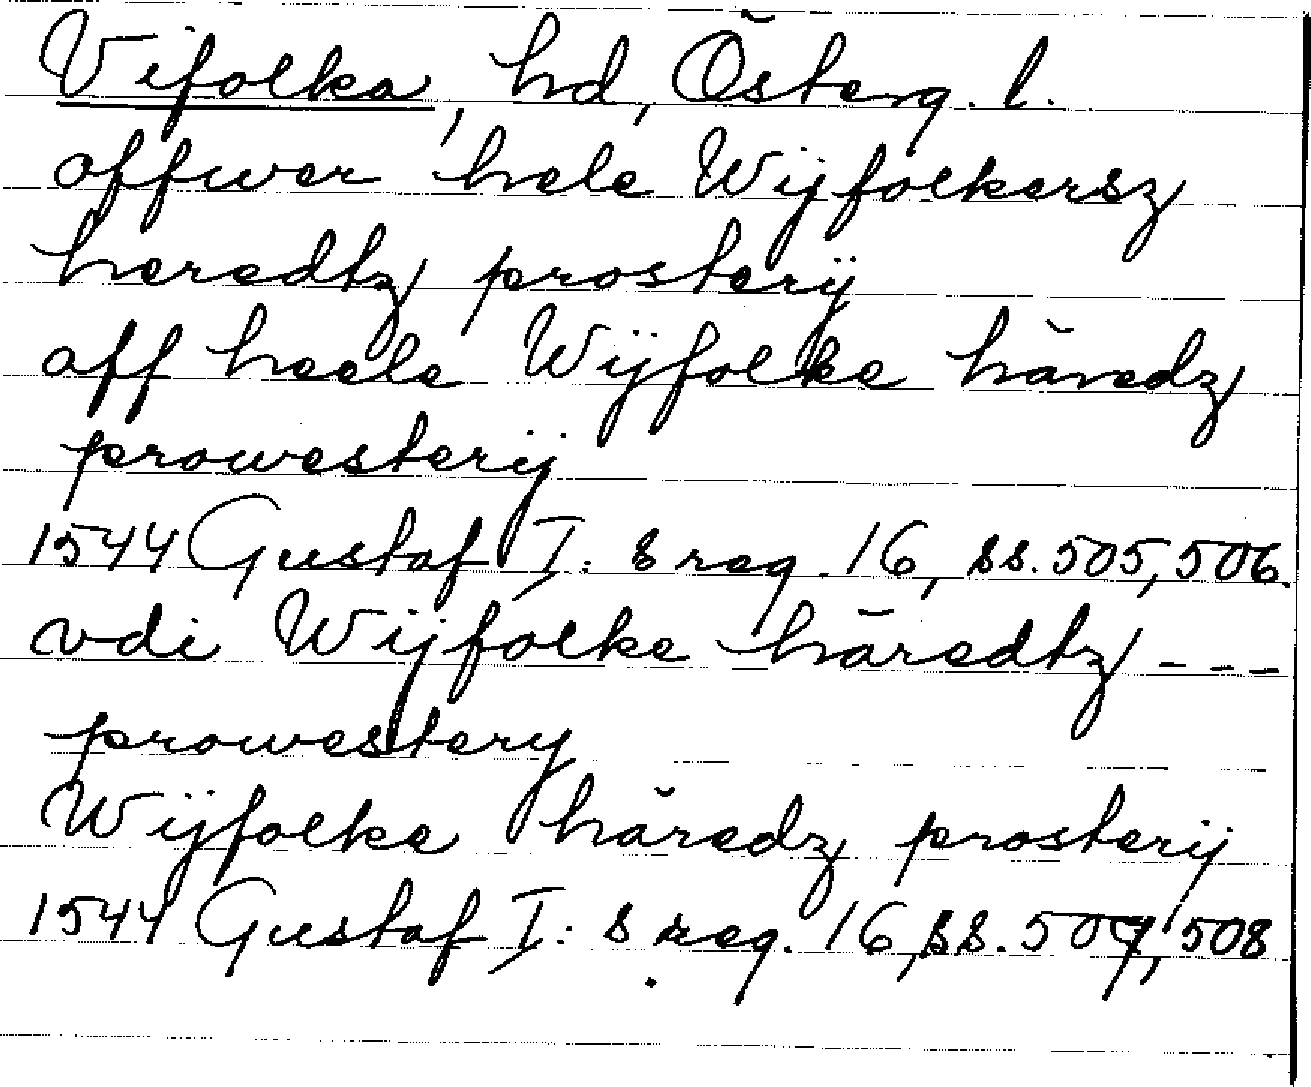 Vifolka, hd, Österg. l.
offwer hele Wijfolkersz
heredtz prosterij
aff heele Wijfolke häredz
prowesterij
1544 Gustaf I:s reg. 16, ss. 505, 506.
vdi Wijfolke häredtz ---
prowestery
Wijfolke häredz prosterij
1544 Gustaf I:s reg. 16, ss. 507, 508